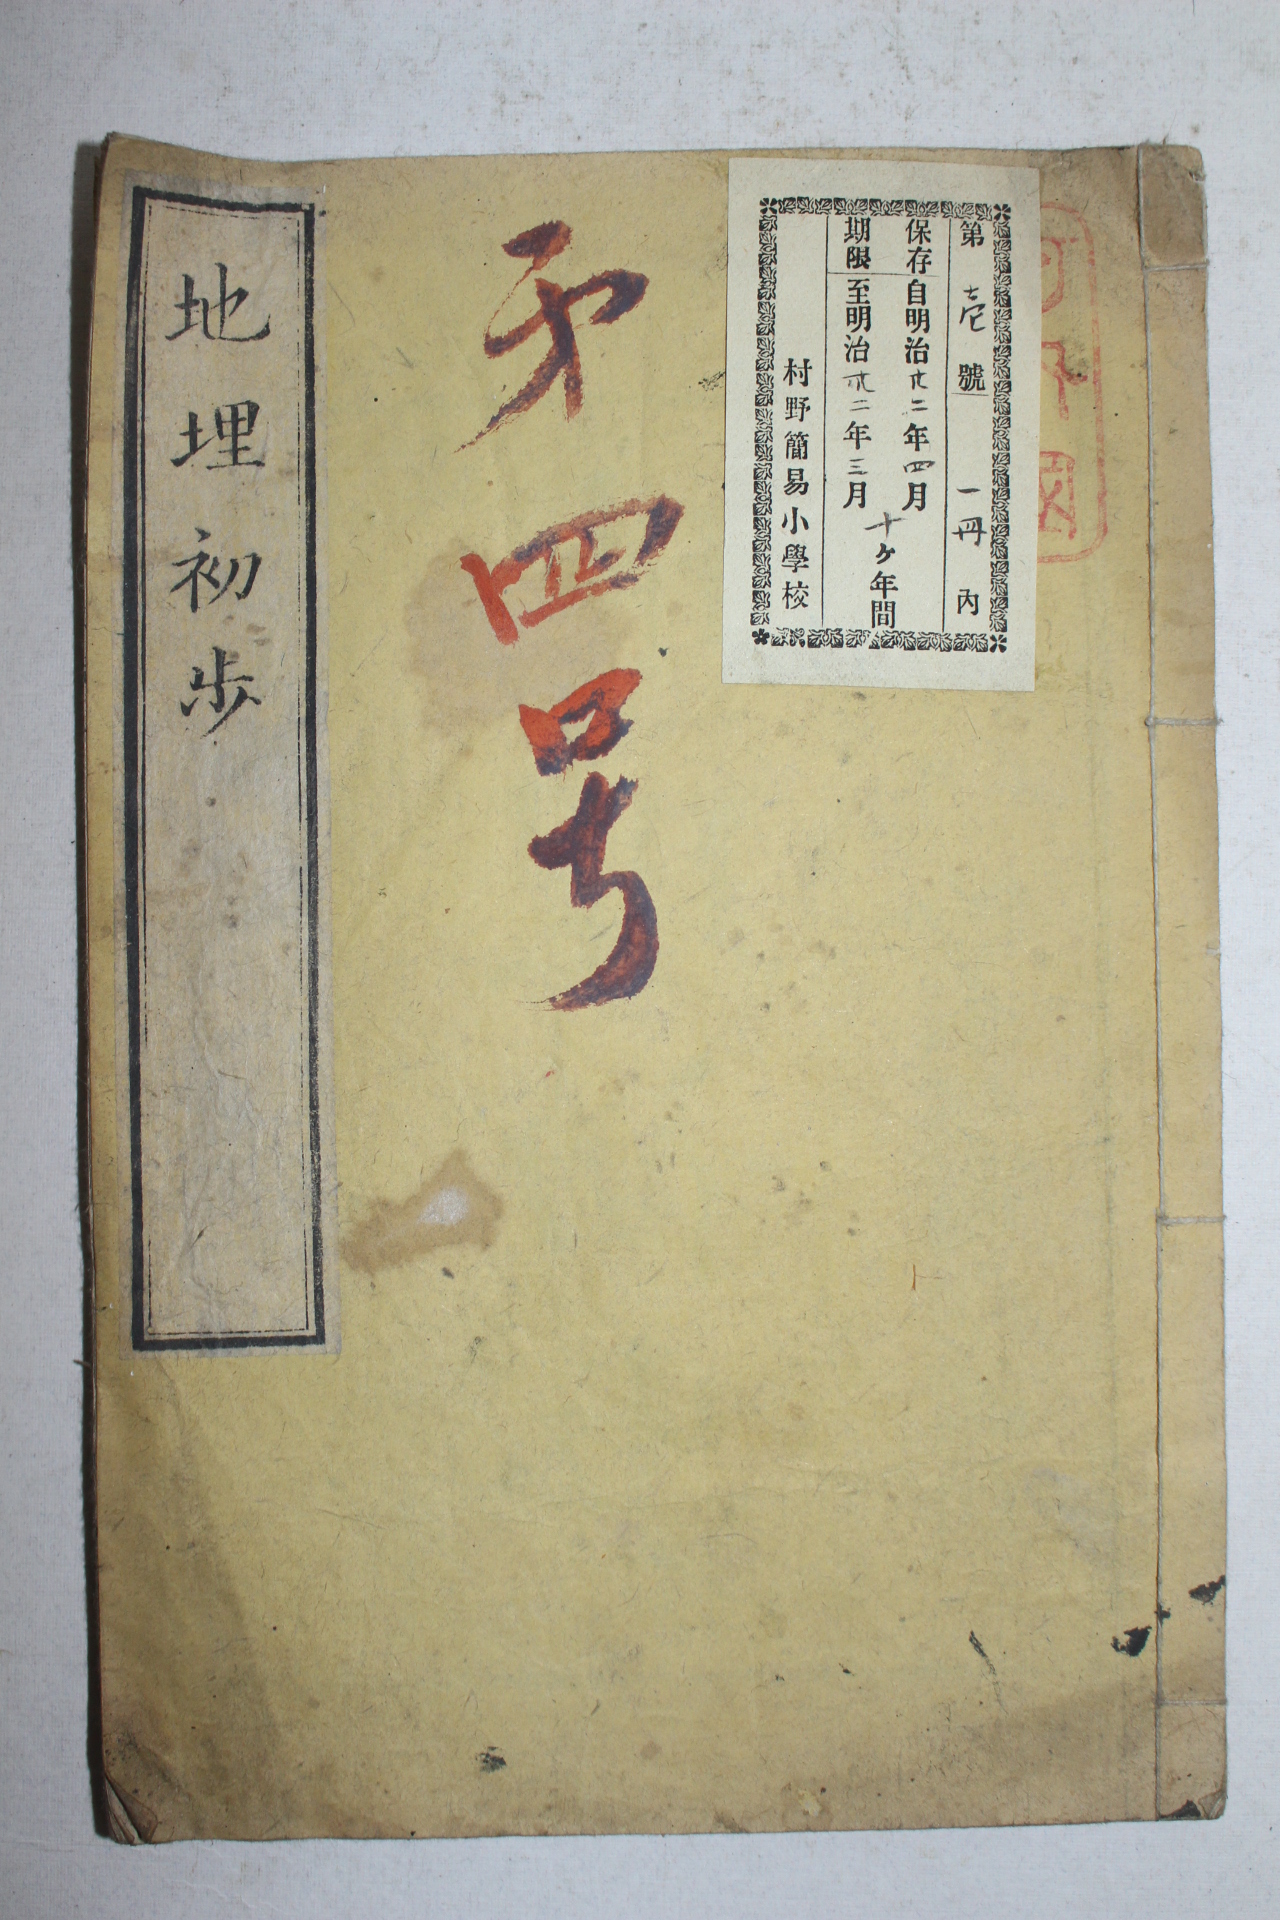 第壱號 一冊内
保存自明治廿二年四月
期限至明治卅二年三月
十ヶ年間
村野簡易小學校
㐧四号
地埋初歩